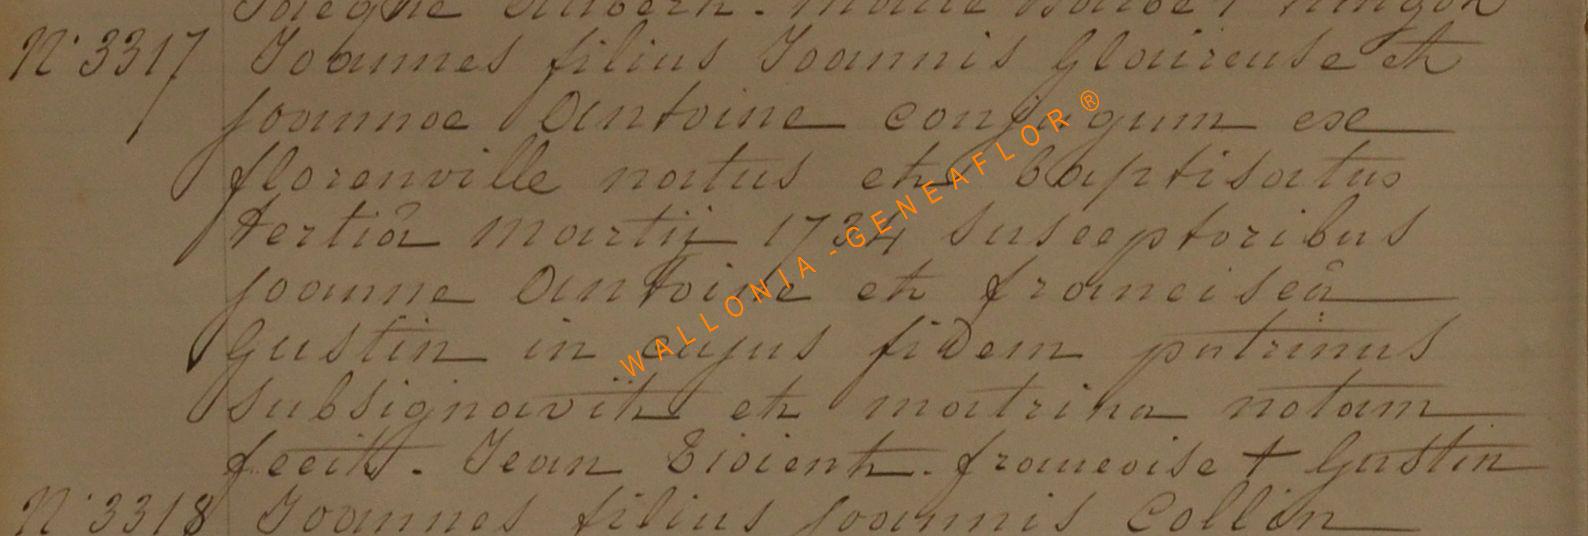 N° 3317 Joannes filius Joannis Glaireuse et
joannoe Antoine conjugum ex
florenville natus et baptisatus
tertiâ martij 1734 susceptoribus
joanne Antoine et franciscâ
Gustin in cujus fidem patrinus
subsignavit et matrina notam
fecit. Jean françoise + Gustin
N° 3318 Joannes filius joannis Collin
WALLONIA - GENEAFLOR ®